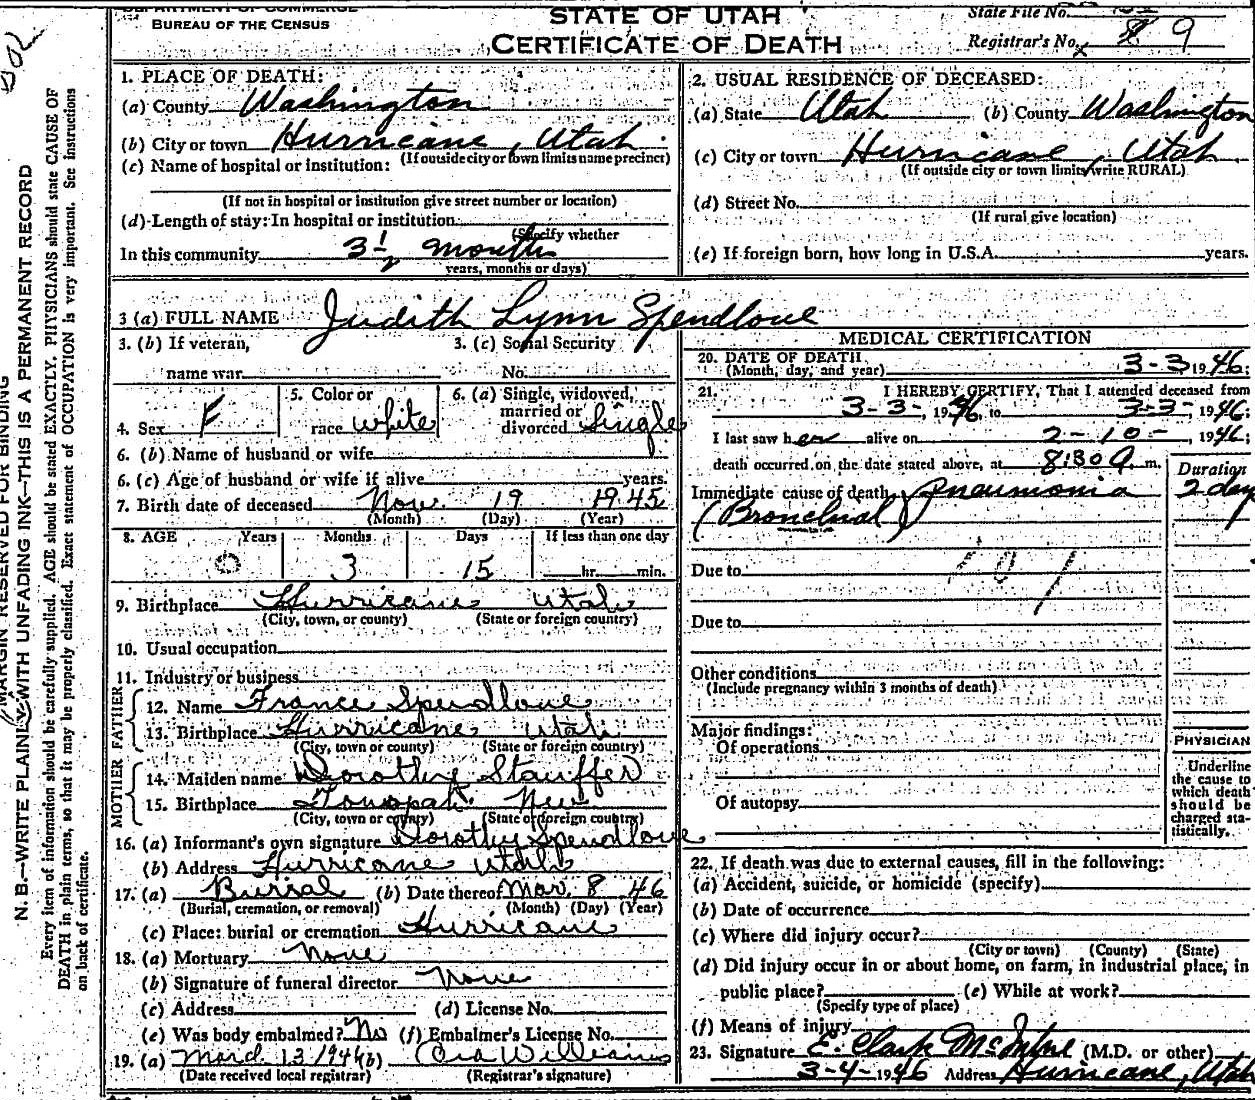 DEPARTMENT OF COMMERCE
BUREAU OF THE CENSUS
STATE OF UTAH
CERTIFICATE OF DEATH
State File No.
Registrar's No. 9
MARGIN RESERVED FOR BINDING
N. B.—WRITE PLAINLY WITH UNFADING INK—THIS IS A PERMANENT RECORD
Every item of information should be carefully supplied. AGE should be stated EXACTLY. PHYSICIANS should state CAUSE OF
DEATH in plain terms, so that it may be properly classified. Exact statement of OCCUPATION is very important. See instructions
on back of certificate.
1. PLACE OF DEATH:
(a) County Washington
(b) City or town Hurricane, Utah
(If outside city or town limits name precinct)
(c) Name of hospital or institution:
(If not in hospital or institution give street number or location)
(d) Length of stay: In hospital or institution
(Specify whether
In this community 3½ months
years, months or days)
2. USUAL RESIDENCE OF DECEASED:
(a) State Utah (b) County Washington
(c) City or town Hurricane, Utah
(If outside city or town limits write RURAL)
(d) Street No.
(If rural give location)
(e) If foreign born, how long in U.S.A. years.
3 (a) FULL NAME Judith Lynn Spendlove
3. (b) If veteran,
name war
3. (c) Social Security
No.
4. Sex F
5. Color or
race white
6. (a) Single, widowed,
married or
divorced Single
6. (b) Name of husband or wife
6. (c) Age of husband or wife if alive years.
7. Birth date of deceased Nov. 19 1945
(Month) (Day) (Year)
8. AGE Years Months Days If less than one day
0 3 15 hr. min.
9. Birthplace Hurricane Utah
(City, town, or county) (State or foreign country)
10. Usual occupation
11. Industry or business
FATHER
12. Name France Spendlove
13. Birthplace Hurricane Utah
(City, town or county) (State or foreign country)
MOTHER
14. Maiden name Dorothy Stauffer
15. Birthplace Tonopah Nev
(City, town or county) (State or foreign country)
16. (a) Informant's own signature Dorothy Spendlove
(b) Address Hurricane Utah
17. (a) Burial (b) Date thereof Mar. 8 46
(Burial, cremation, or removal) (Month) (Day) (Year)
(c) Place: burial or cremation Hurricane
18. (a) Mortuary None
(b) Signature of funeral director None
(c) Address (d) License No.
(e) Was body embalmed? No (f) Embalmer's License No.
19. (a) March 13 1946 (b) Ora Williams
(Date received local registrar) (Registrar's signature)
MEDICAL CERTIFICATION
20. DATE OF DEATH
(Month, day, and year) 3-3 1946;
21. I HEREBY CERTIFY, That I attended deceased from
3-3-, 1946, to 3-3-, 1946;
I last saw her alive on 2-10-, 1946;
death occurred on the date stated above, at 8:30 A. m.
Duration
Immediate cause of death Pneumonia 2 day
(Bronchial)
Due to
Due to
Other conditions
(Include pregnancy within 3 months of death)
Major findings:
Of operations
Of autopsy
PHYSICIAN
Underline
the cause to
which death
should be
charged sta-
tistically.
22. If death was due to external causes, fill in the following:
(a) Accident, suicide, or homicide (specify)
(b) Date of occurrence
(c) Where did injury occur?
(City or town) (County) (State)
(d) Did injury occur in or about home, on farm, in industrial place, in
public place? (e) While at work?
(Specify type of place)
(f) Means of injury
23. Signature E. Clark McIntire (M.D. or other)
3-4-1946 Address Hurricane, Utah